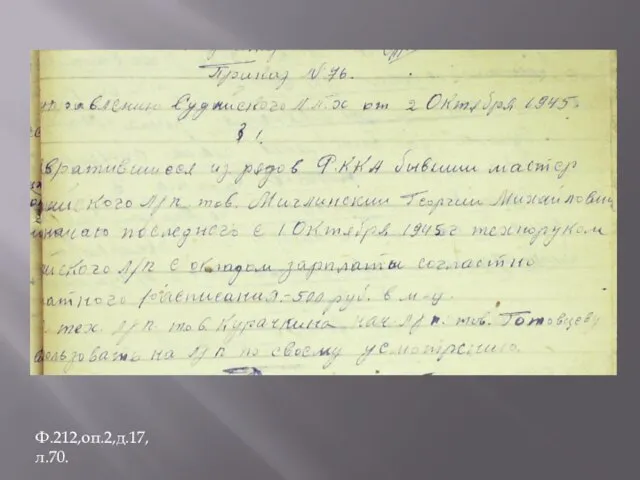 Приказ № 76.
Судайского ЛПХ от 2 Октября 1945г
§ 1.
вратившиеся из рядов РККА бывший мастер
йского Л/П тов. Миглинский Георгий Михайлович
начаю последнего с 1 Октября 1945г техноруком
йского Л/П с окладом зарплаты согластно
атного расписания - 500 руб. в м-ц.
тех. Л/П тов. Курачкина нач Л/П. тов. Готовцеву
ользовать на Л/П по своему усмотрению.
Ф.212,оп.2,д.17,
л.70.